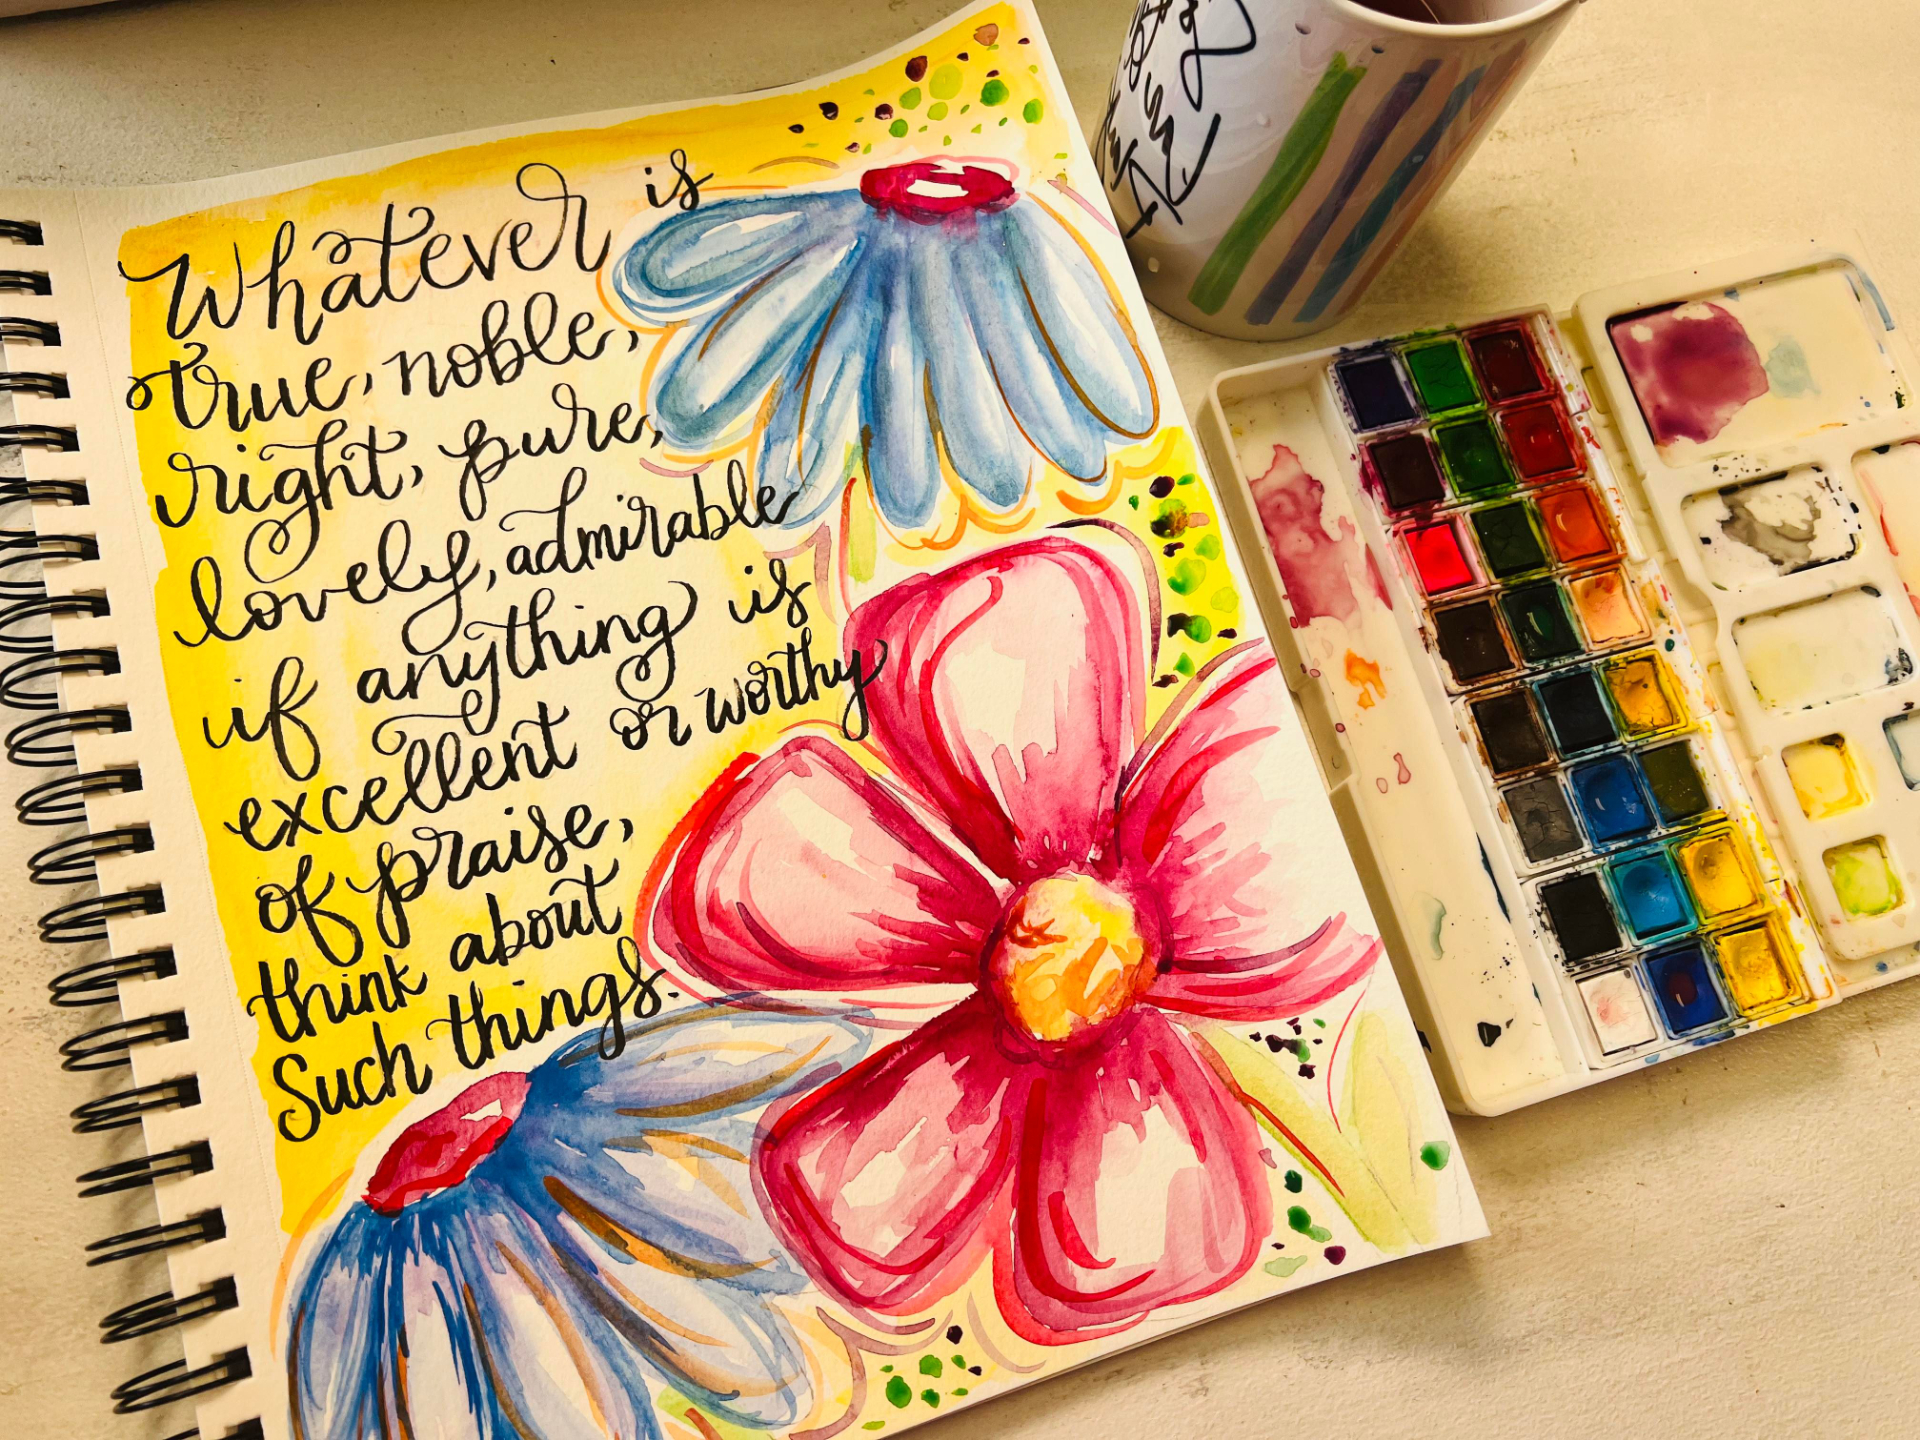 Whatever is
true, noble,
right, pure,
lovely, admirable
if anything is
excellent or worthy
of praise,
think about
Such things.